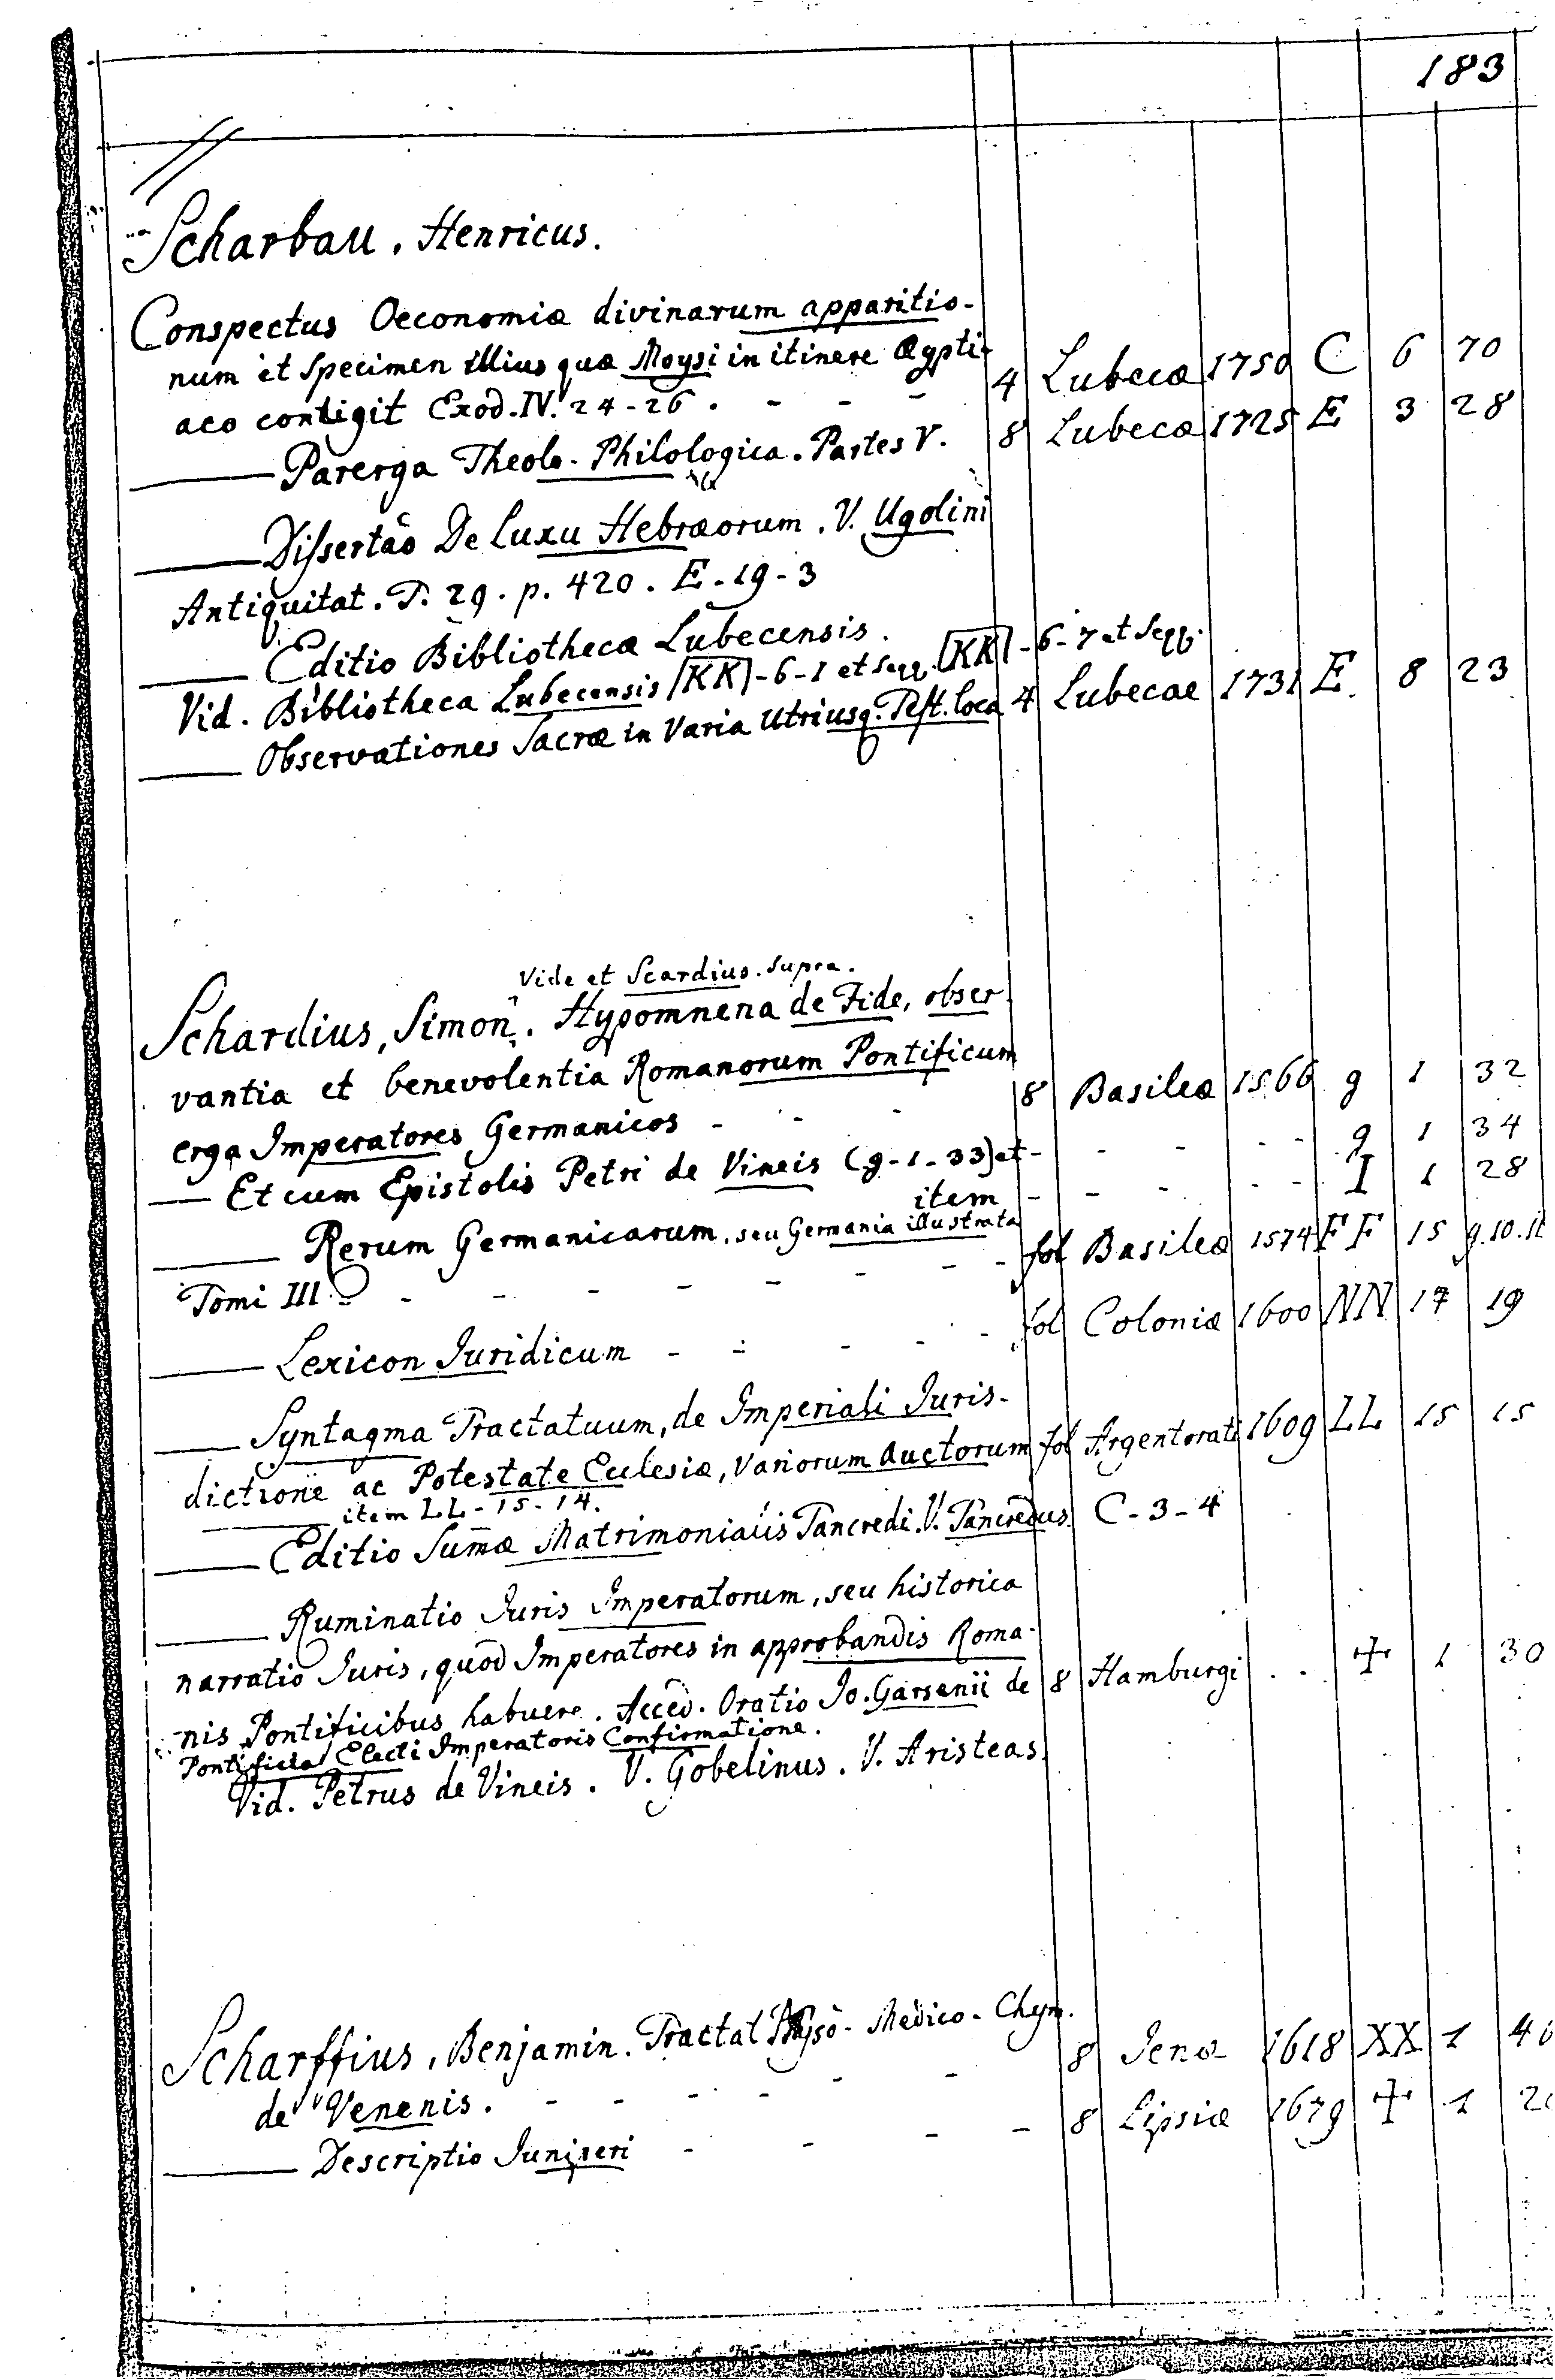 183
Scharbau, Henricus.
Conspectus Oeconomiæ divinarum apparitio-
num et Specimen illius quæ Moysi in itinere Ægypti-
aco contigit Exod. IV. 24-26. - - - 4 Lubecæ 1750 C 6 70
—— Parerga Theolo-Philologica. Partes V. 8 Lubecæ 1725 E 3 28
—— Dissertao De Luxu Hebræorum. V. Ugolini
Antiquitat. T. 29. p. 420. E-19-3
—— Editio Bibliothecæ Lubecensis.
Vid. Bibliotheca Lubecensis [KK]-6-1 et seqq. [KK]-6-7 et seqq.
—— Observationes Sacræ in Varia utriusq. Test. loca 4 Lubecae 1731 E 8 23
Vide et Scardius. supra.
Schardius, Simon. Hypomnena de Fide, obser-
vantia et benevolentia Romanorum Pontificum
erga Imperatores Germanicos - - - 8 Basileæ 1566 g 1 32
—— Et cum Epistolis Petri de Vineis (g-1-33) et - - - - - g 1 34
item - - - - - I 1 28
—— Rerum Germanicarum, seu Germania illustrata
Tomi III - - - - - - - fol Basileæ 1574 FF 15 9.10.11
—— Lexicon Juridicum - - - - - fol Coloniæ 1600 NN 17 19
—— Syntagma Tractatuum, de Imperiali Juris-
dictione ac Potestate Ecclesiæ, Variorum Auctorum fol Argentorati 1609 LL 15 15
—— item LL-15-14.
—— Editio Sumæ Matrimonialis Tancredi. V. Tancredus. C-3-4
—— Ruminatio Juris Imperatorum, seu historica
narratio Juris, quod Imperatores in approbandis Roma-
nis Pontificibus habuere. Acced. Oratio Jo. Garsenii de 8 Hamburgi . . + 1 30
Pontificia Electi Imperatoris Confirmatione.
Vid. Petrus de Vineis. V. Gobelinus. V. Aristeas.
Scharffius, Benjamin. Tractat Physo-Medico-Chym.
de Venenis. - - - - - - 8 Jenæ 1618 XX 1
—— Descriptio Juniperi - - - - 8 Lipsiæ 1679 + 1